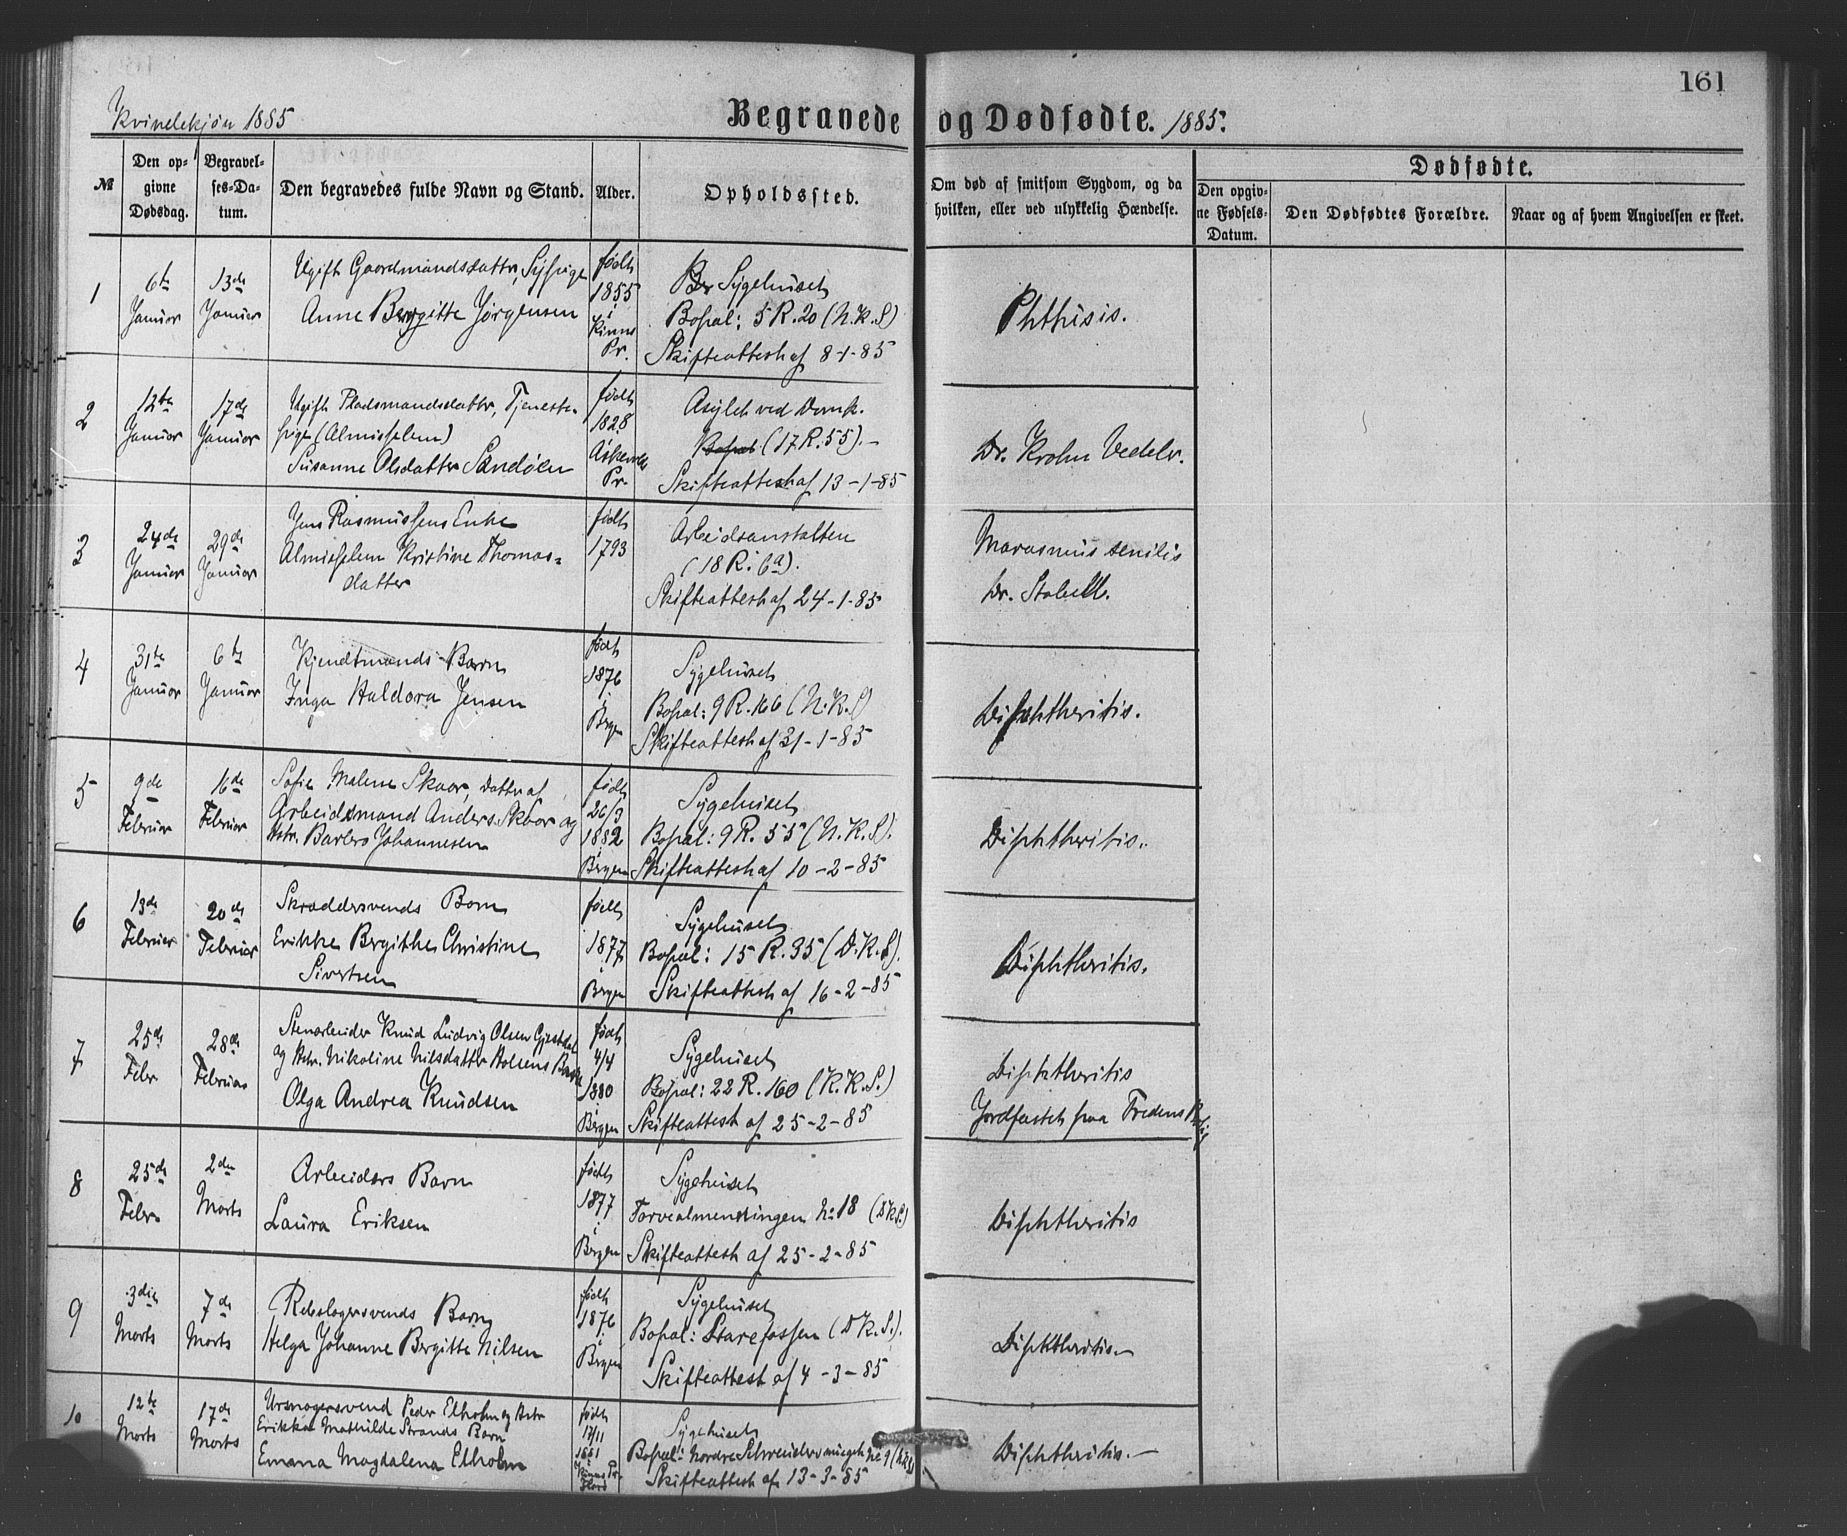 161
Kvindekjøn 1885
Begravede og Dødfødte. 1885.
№
Den opgivne Dødsdag.
Begravelses-Datum.
Den begravedes fulde Navn og Stand.
Alder.
Opholdssted.
Om død af smitsom Sygdom, og da hvilken, eller ved ulykkelig Hændelse.
Dødfødte.
Den opgivne Fødsels-Datum.
Den Dødfødtes Forældre.
Naar og af hvem Angivelsen er skeet.
1
6te Januar
13de Januar
Ugift Gaardmandsdatter, Sypige
Anne Bergitte Jørgensen
født 1855 i Kinns Pr.
Sygehuset
Bopæl: 5 R. 20 (N.K.S)
Skifteattest af 8-1-85
Phthisis.
2
12te Januar
17de Januar
Ugift Pladsmandsdatter, Tjeneste-
pige (Almisselem)
Susanne Olsdatter Sandøen
født 1828 Askevolds Pr
Asylet ved Domk.
Bopæl (17 R. 55). –
Skifteattest af 13-1-85
Dr. Krohn Vedeler.
3
24de Januar
29de Januar
Jens Rasmussens Enke
Almisselem Kristine Thomas=
datter
født 1793
Arbeidsanstalten
(18 R. 6a).
Skifteattest af 24-1-85
Marasmus senilis
Dr. Stabell.
4
31te Januar
6te Januar
Kjendtmands Barn
Inga Haldora Jensen
født 1876 i Bergen
Sygehuset
Bopæl: 9 R. 166 (N.K.S)
Skifteattest af 31-1-85
Diphtheritis.
5
9de Februar
16de Februar
Sofie Malene Skaar, Datter af
Arbeidsmand Anders Skaar og
Hstr. Barbro Johannesen
født 26/3 1882 i Bergen
Sygehuset
Bopæl: 9 R. 55 (N.K.S).
Skifteattest af 10-2-85
Diphtheritis.
6
13de Februar
20de Februar
Skræddersvends Barn
Erikke Bergitte Christine
Sivertsen
født 1877 i Bergen
Sygehuset
Bopæl: 15 R. 35 (D.K.S).
Skifteattest af 16-2-85
Diphtheritis.
7
25de Febr
28de Februar
Stenarbeider Knud Ludvig Olsen Gjestdal
og Hstr. Nikoline Nilsdatter Holsens Barn
Olga Andrea Knudsen
født 4/4 1880 i Bergen
Sygehuset
Bopæl: 22 R. 160 (K.K.S.)
Skifteattest af 25-2-85
Diphtheritis
Jordfæstet paa Fredens Bolig
8
25de Febr
2den Marts
Arbeiders Barn
Laura Eriksen
født 1877 i Bergen
Sygehuset
Torvealmendingen No 18 (D.K.S.)
Skifteattest af 25-2-85
Diphtheritis
9
3die Marts
7de Marts
Rebslagersvends Barn
Helga Johanne Bergitte Nilsen
født 1876 i Bergen
Sygehuset
Bopæl: Starefossen (D.K.S.).
Skifteattest af 4-3-85
Diphtheritis.
10
12te Marts
17de Marts
Ursmagersvend Peder Elholm og Hstr
Erikka Mathilde Strands Barn
Emma Magdalena Elholm
født 17/11 1881
Sygehuset
Bopæl: Nordre
Skifteattest af 13-3-85
Diphtheritis. –